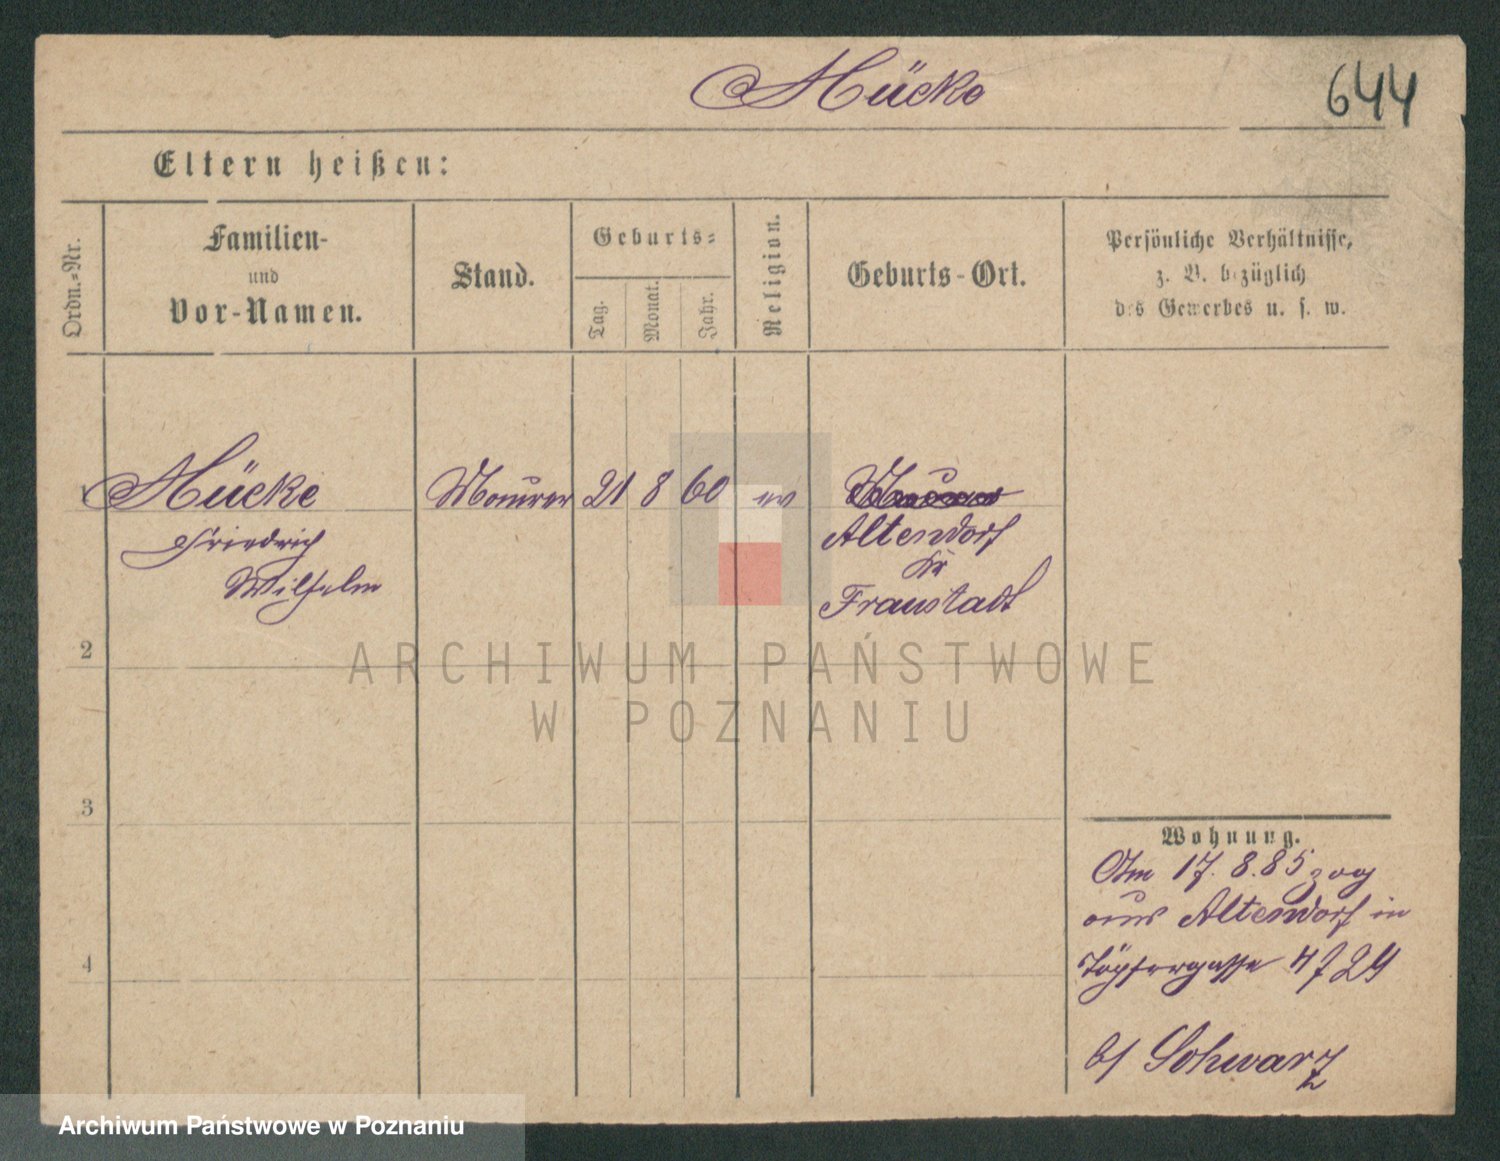 Mücke
644
Eltern heißen:
Ordn.-Nr.
Familien-
und
Vor-Namen.
Stand.
Geburts-
Tag.
Monat.
Jahr.
Religion.
Geburts-Ort.
Persönliche Verhältnisse,
z. B. bezüglich
des Gewerbes u. s. w.
1 Mücke Maurer 21 8 60 ev
Friedrich
Wilhelm
Altendorf
Kr
Fraustadt
2
3
4
Wohnung.
Am 17. 8. 85 zog
aus Altendorf in
Töpfergasse
b/ Schwarz
ARCHIWUM PAŃSTWOWE
W POZNANIU
Archiwum Państwowe w Poznaniu